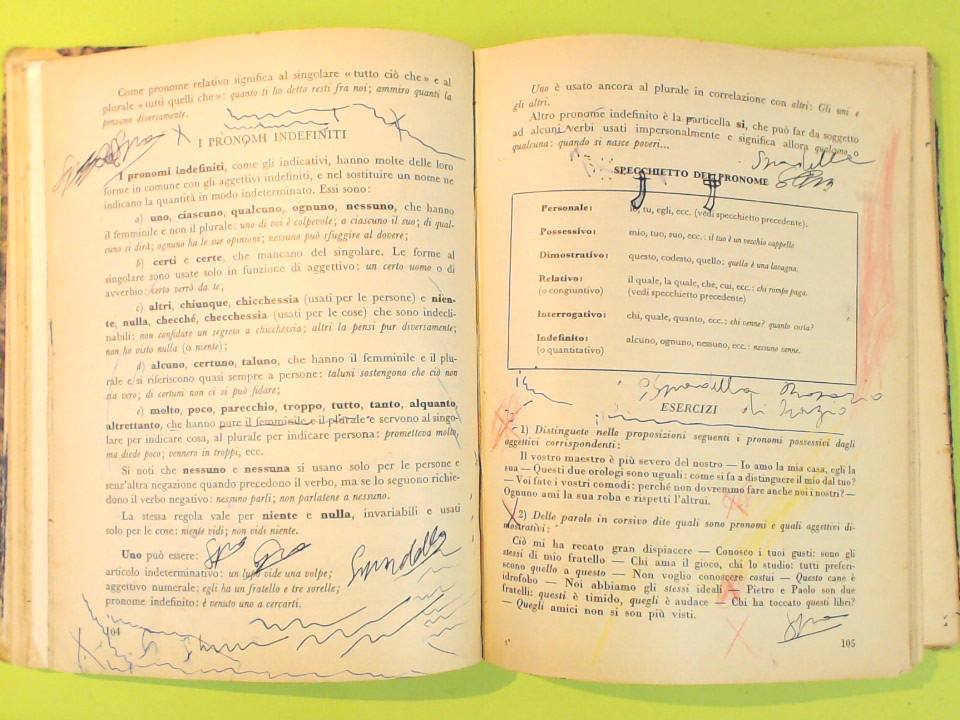 Come pronome relativo significa al singolare « tutto ciò che » e al
plurale « tutti quelli che »: quanto ti ho detto resti fra noi; ammiro quanti la
pensano diversamente.
I PRONOMI INDEFINITI
I pronomi indefiniti, come gli indicativi, hanno molte delle loro
forme in comune con gli aggettivi indefiniti, e nel sostituire un nome ne
indicano la quantità in modo indeterminato. Essi sono:
a) uno, ciascuno, qualcuno, ognuno, nessuno, che hanno
il femminile e non il plurale: uno di voi è colpevole; a ciascuno il suo; di qual-
cuno si dirà; ognuno ha le sue opinioni; nessuno può sfuggire al dovere;
b) certi e certe, che mancano del singolare. Le forme al
singolare sono usate solo in funzione di aggettivo: un certo uomo o di
avverbio: certo verrò da te;
c) altri, chiunque, chicchessia (usati per le persone) e nien-
te, nulla, checché, checchessia (usati per le cose) che sono indecli-
nabili: non confidare un segreto a chicchessia; altri la pensi pur diversamente;
non ho visto nulla (o niente);
d) alcuno, certuno, taluno, che hanno il femminile e il plu-
rale e si riferiscono quasi sempre a persone: taluni sostengono che ciò non
sia vero; di certuni non ci si può fidare;
e) molto, poco, parecchio, troppo, tutto, tanto, alquanto,
altrettanto, che hanno pure il femminile e il plurale e servono al singo-
lare per indicare cosa, al plurale per indicare persona: prometteva molto,
ma diede poco; vennero in troppi, ecc.
Si noti che nessuno e nessuna si usano solo per le persone e
senz'altra negazione quando precedono il verbo, ma se lo seguono richie-
dono il verbo negativo: nessuno parli; non parlatene a nessuno.
La stessa regola vale per niente e nulla, invariabili e usati
solo per le cose: niente vidi; non vidi niente.
Uno può essere:
articolo indeterminativo: un lupo vide una volpe;
aggettivo numerale: egli ha un fratello e tre sorelle;
pronome indefinito: è venuto uno a cercarti.
Spadella
104
Uno è usato ancora al plurale in correlazione con altri: Gli uni e
gli altri.
Altro pronome indefinito è la particella si, che può far da soggetto
ad alcuni verbi usati impersonalmente e significa allora qualcuno o
qualcuna: quando si nasce poveri...
Spadella
SPECCHIETTO DEL PRONOME
Personale: io, tu, egli, ecc. (vedi specchietto precedente).
Possessivo: mio, tuo, suo, ecc.: il tuo è un vecchio cappello
Dimostrativo: questo, codesto, quello: quella è una lavagna.
Relativo: il quale, la quale, che, cui, ecc.: chi rompe paga.
(o congiuntivo) (vedi specchietto precedente)
Interrogativo: chi, quale, quanto, ecc.: chi venne? quanto costa?
Indefinito: alcuno, ognuno, nessuno, ecc.: nessuno venne.
(o quantitativo)
Spadella
ESERCIZI
1) Distinguete nelle proposizioni seguenti i pronomi possessivi dagli
aggettivi corrispondenti:
Il vostro maestro è più severo del nostro — Io amo la mia casa, egli la
sua — Questi due orologi sono uguali: come si fa a distinguere il mio dal tuo?
— Voi fate i vostri comodi: perché non dovremmo fare anche noi i nostri? —
Ognuno ami la sua roba e rispetti l'altrui.
2) Delle parole in corsivo dite quali sono pronomi e quali aggettivi di-
mostrativi:
Ciò mi ha recato gran dispiacere — Conosco i tuoi gusti: sono gli
stessi di mio fratello — Chi ama il gioco, chi lo studio: tutti preferi-
scono quello a questo — Non voglio conoscere costui — Questo cane è
idrofobo — Noi abbiamo gli stessi ideali — Pietro e Paolo son due
fratelli: questi è timido, quegli è audace — Chi ha toccato questi libri?
— Quegli amici non si son più visti.
105